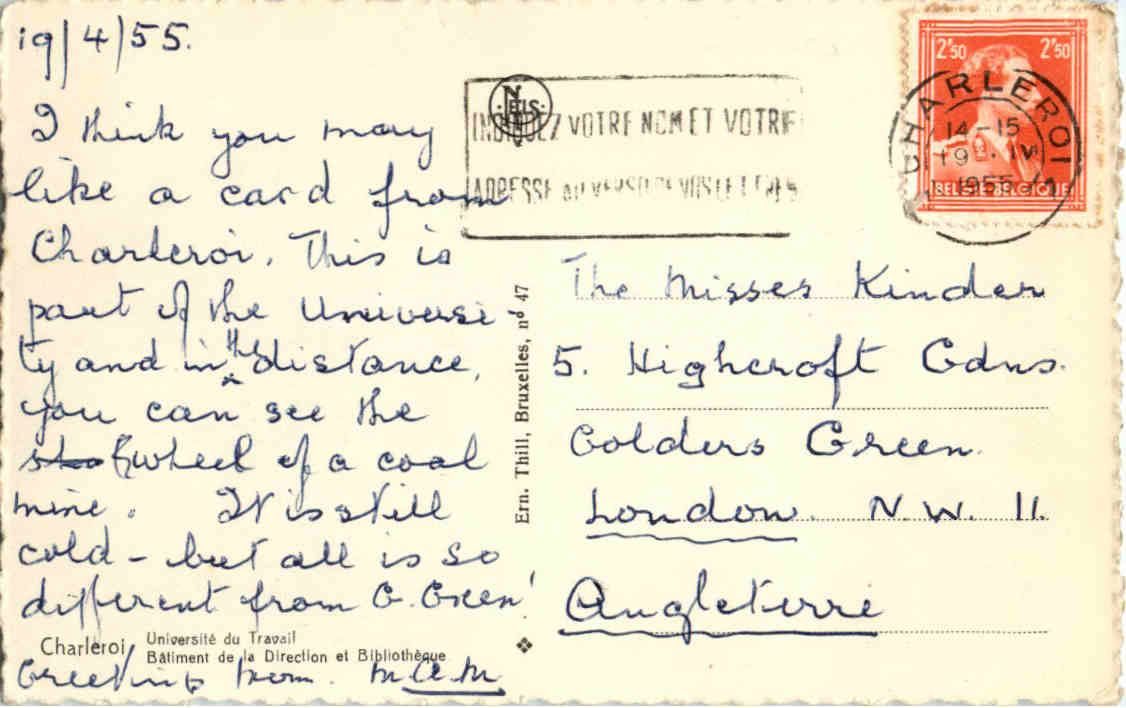 19/4/55.
I think you may
like a card from
Charleroi. This is
part of the Universi-
ty and in the distance,
you can see the
wheel of a coal
mine. It is still
cold - but all is so
different from G. Green!
Greetings from. M.A.M.
Charleroi
Université du Travail
Bâtiment de la Direction et Bibliothèque
Ern. Thill, Bruxelles, nº 47
NELS
INDIQUEZ VOTRE NOM ET VOTRE
ADRESSE AU VERSO DE VOS LETTRES
2F50 2F50
BELGIE-BELGIQUE
CHARLEROI
14-15
19 IV
1955
The Misses Kinder
5. Highcroft Gdns.
Golders Green.
London. N.W. 11.
Angleterre